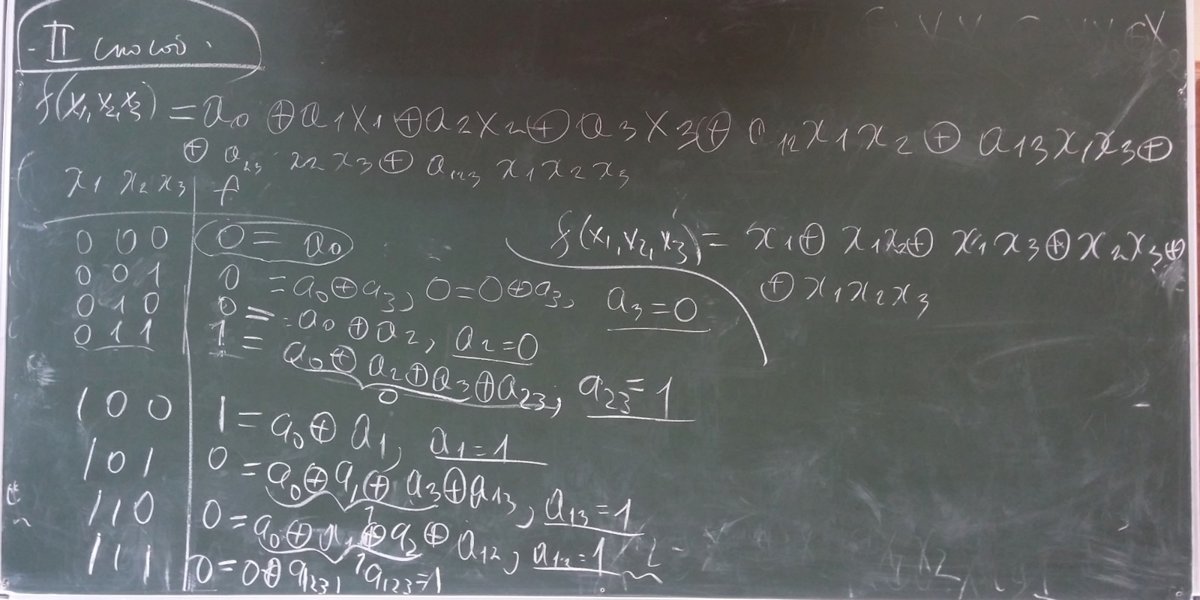 II способ.
f(x₁,x₂,x₃) = a₀ ⊕ a₁x₁ ⊕ a₂x₂ ⊕ a₃x₃ ⊕ a₁₂x₁x₂ ⊕ a₁₃x₁x₃ ⊕
⊕ a₂₃ x₂x₃ ⊕ a₁₂₃ x₁x₂x₃
x₁ x₂ x₃ f
0 0 0 0 = a₀
0 0 1 0 = a₀ ⊕ a₃, 0 = 0 ⊕ a₃, a₃ = 0
0 1 0 0 = a₀ ⊕ a₂, a₂ = 0
0 1 1 1 = a₀ ⊕ a₂ ⊕ a₃ ⊕ a₂₃, a₂₃ = 1
0
1 0 0 1 = a₀ ⊕ a₁, a₁ = 1
1 0 1 0 = a₀ ⊕ a₁ ⊕ a₃ ⊕ a₁₃, a₁₃ = 1
1
1 1 0 0 = a₀ ⊕ a₁ ⊕ a₂ ⊕ a₁₂, a₁₂ = 1
1
1 1 1 0 = 0 ⊕ a₁₂₃, a₁₂₃ = 1
f(x₁,x₂,x₃) = x₁ ⊕ x₁x₂ ⊕ x₁x₃ ⊕ x₂x₃ ⊕
⊕ x₁x₂x₃